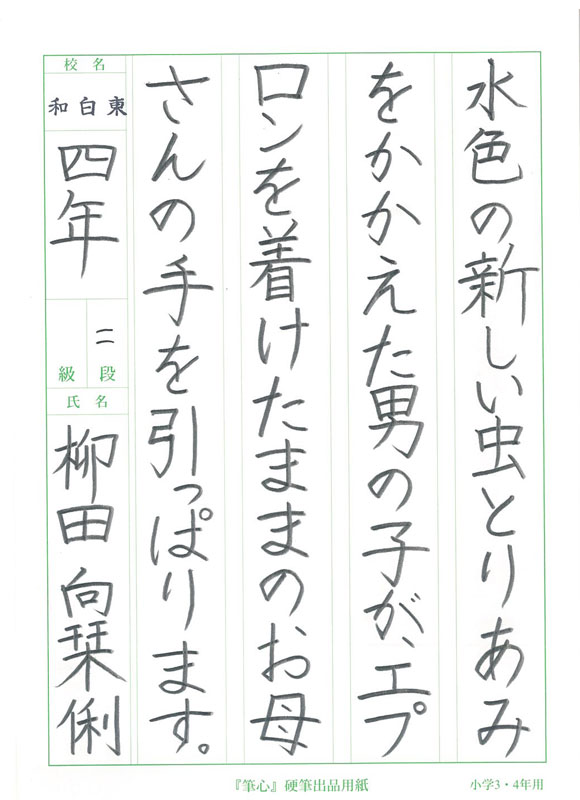 水色の新しい虫とりあみ
をかかえた男の子が、エプ
ロンを着けたままのお母
さんの手を引っぱります。
校名
和白東
四年
二段
級
氏名
柳田向栞俐
『筆心』硬筆出品用紙
小学3・4年用